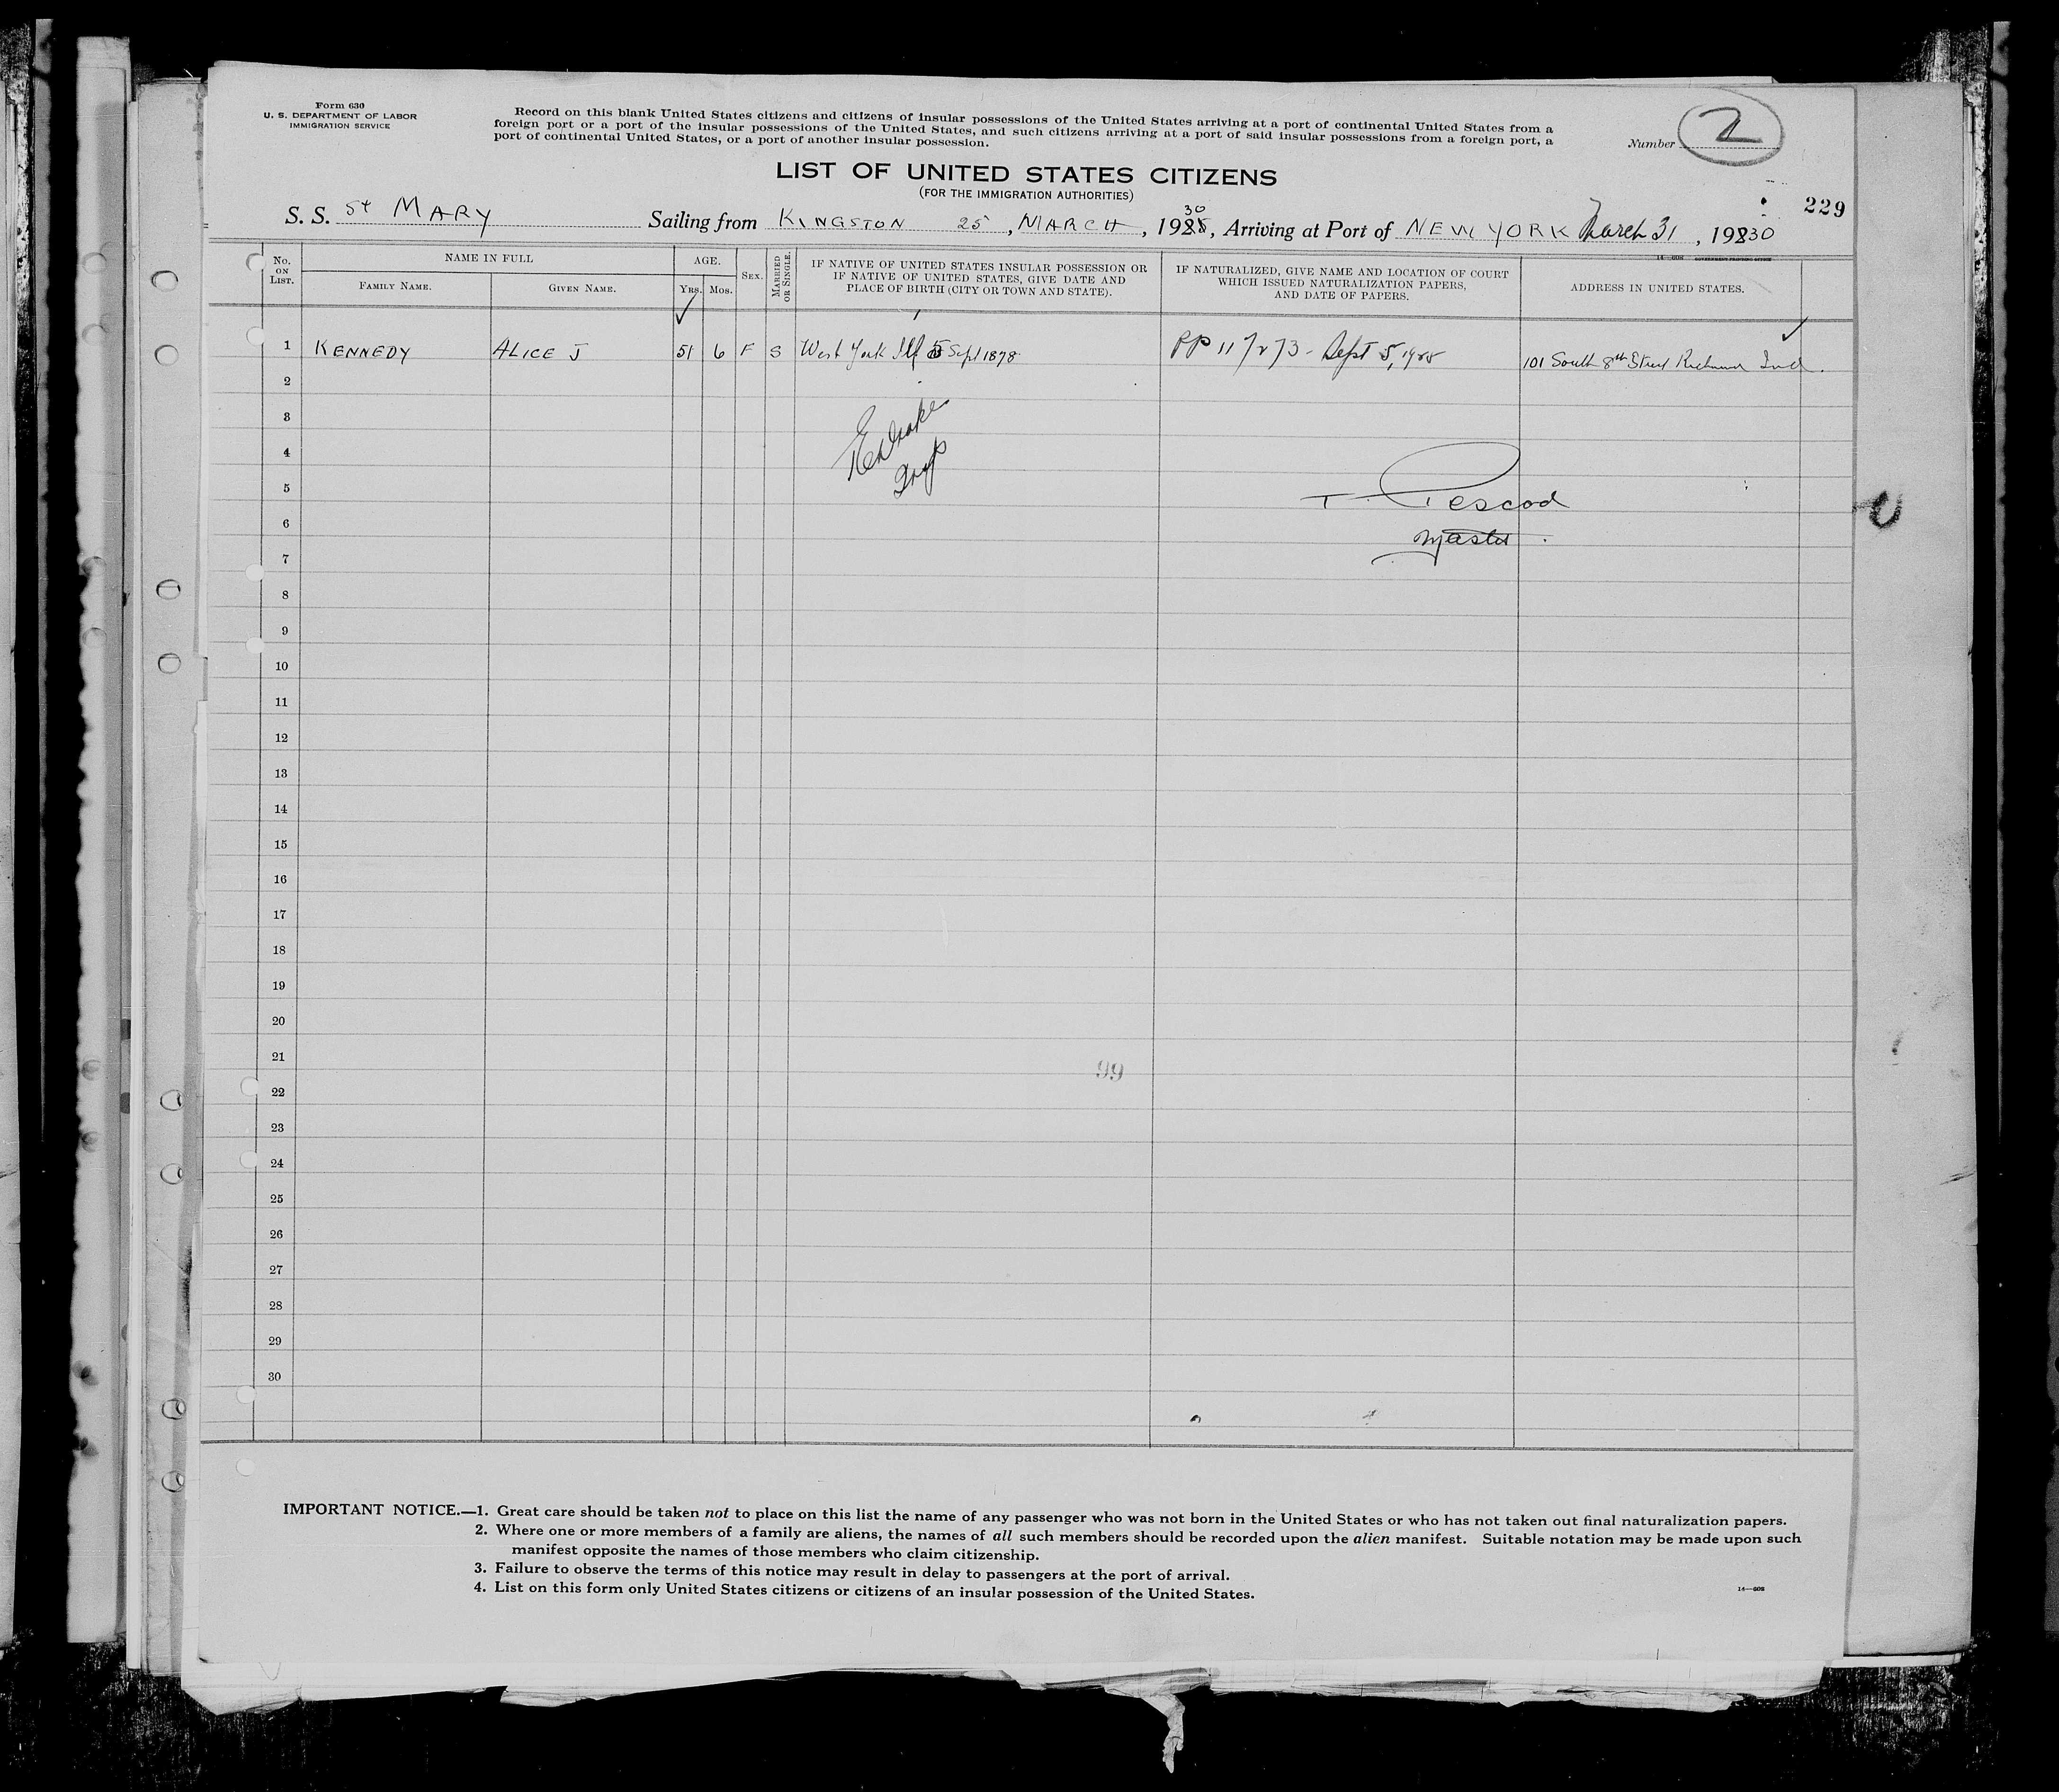 Form 630
U. S. DEPARTMENT OF LABOR
IMMIGRATION SERVICE
Record on this blank United States citizens and citizens of insular possessions of the United States arriving at a port of continental United States from a
foreign port or a port of the insular possessions of the United States, and such citizens arriving at a port of said insular possessions from a foreign port, a
port of continental United States, or a port of another insular possession.
Number 2
LIST OF UNITED STATES CITIZENS
(FOR THE IMMIGRATION AUTHORITIES)
229
S. S. St MARY Sailing from KINGSTON 25, MARCH, 1930, Arriving at Port of NEW YORK March 31, 1930
14—608 GOVERNMENT PRINTING OFFICE
No. ON LIST. NAME IN FULL AGE. SEX. MARRIED OR SINGLE. IF NATIVE OF UNITED STATES INSULAR POSSESSION OR IF NATIVE OF UNITED STATES, GIVE DATE AND PLACE OF BIRTH (CITY OR TOWN AND STATE). IF NATURALIZED, GIVE NAME AND LOCATION OF COURT WHICH ISSUED NATURALIZATION PAPERS, AND DATE OF PAPERS. ADDRESS IN UNITED STATES.
FAMILY NAME. GIVEN NAME. YRS. MOS.
1 KENNEDY ALICE J 51 6 F S West York Ill 5 Sept 1878 PP 117273 - Sept 5, 1928 101 South 8th Street Richmond Ind.
2
3
4
5 T. Pescod
6 Master.
7
8
9
10
11
12
13
14
15
16
17
18
19
20
21
99
22
23
24
25
26
27
28
29
30
IMPORTANT NOTICE.—1. Great care should be taken not to place on this list the name of any passenger who was not born in the United States or who has not taken out final naturalization papers.
2. Where one or more members of a family are aliens, the names of all such members should be recorded upon the alien manifest. Suitable notation may be made upon such
manifest opposite the names of those members who claim citizenship.
3. Failure to observe the terms of this notice may result in delay to passengers at the port of arrival.
4. List on this form only United States citizens or citizens of an insular possession of the United States.
14—608